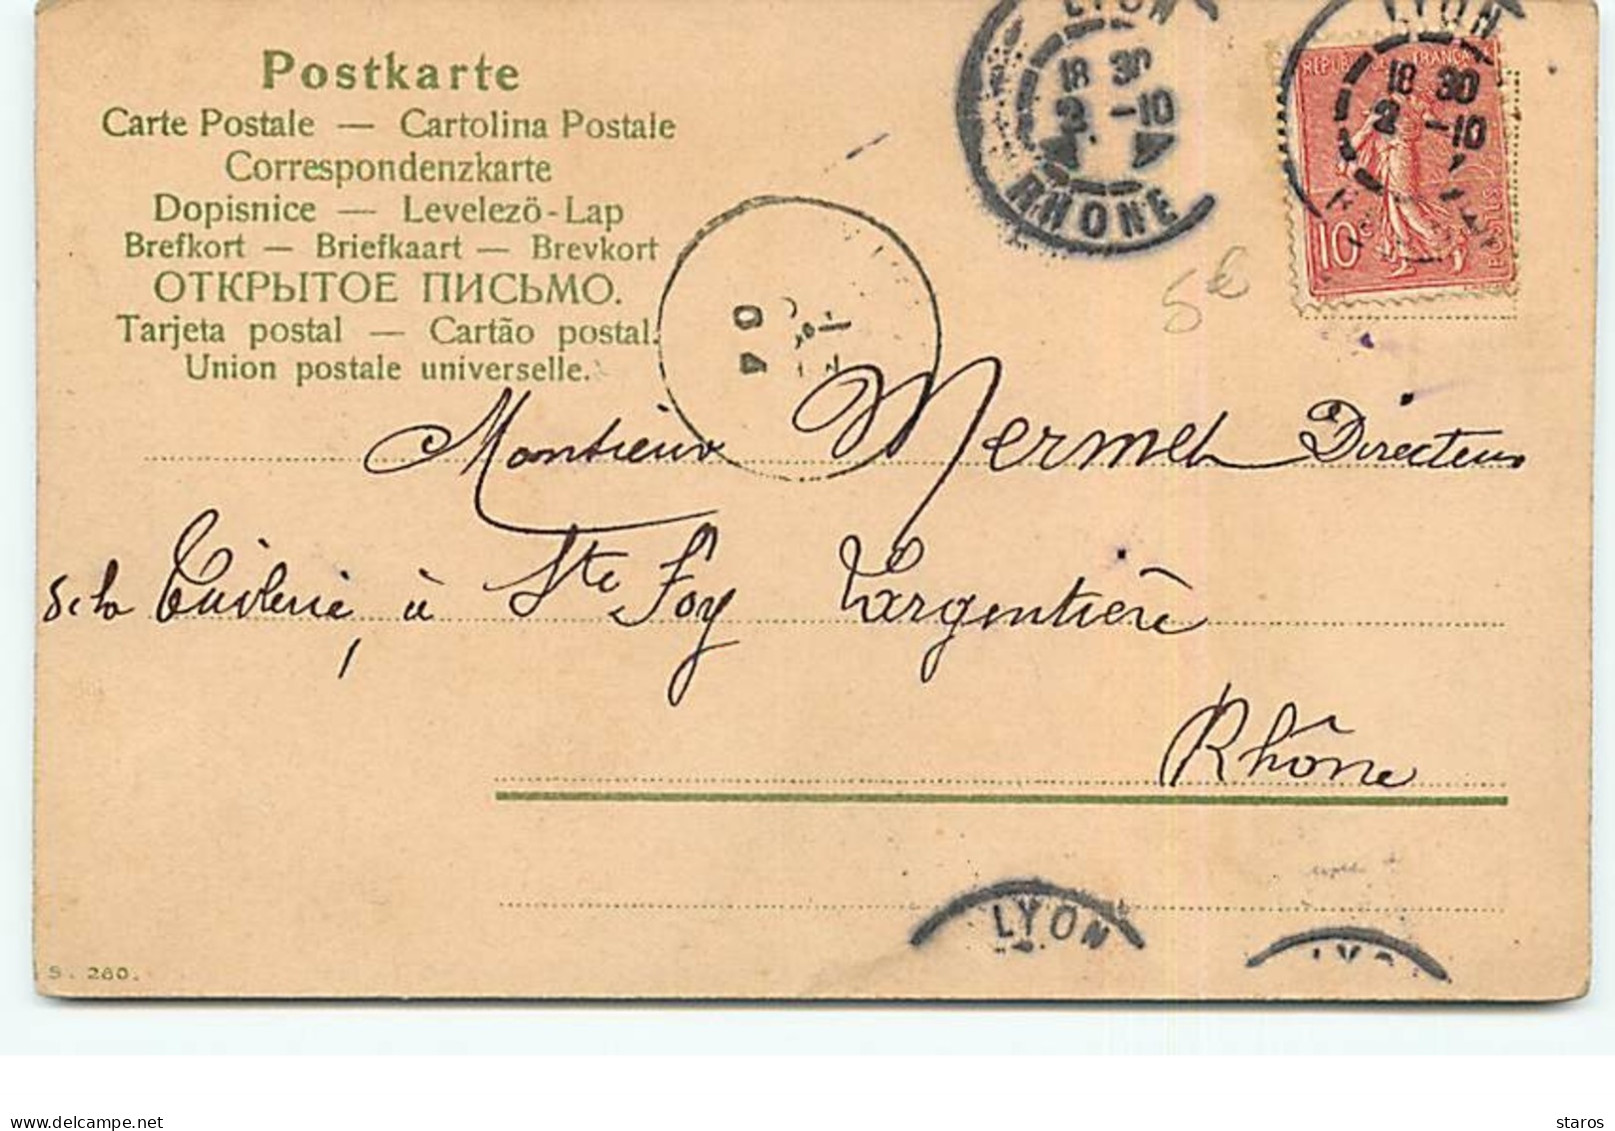 Postkarte
Carte Postale — Cartolina Postale
Correspondenzkarte
Dopisnice — Levelező-Lap
Brefkort — Briefkaart — Brevkort
ОТКРЫТОЕ ПИСЬМО.
Tarjeta postal — Cartão postal.
Union postale universelle.
LYON
18 30
2 -10
RHONE
LYON
18 30
2 -10
REPUBLIQUE FRANÇAISE
10
POSTES
5€
04
Monsieur Mermet Directeur
de la Tuilerie, à Ste Foy Largentière
Rhône
LYON
LYO
S. 280.
www.delcampe.net
staros